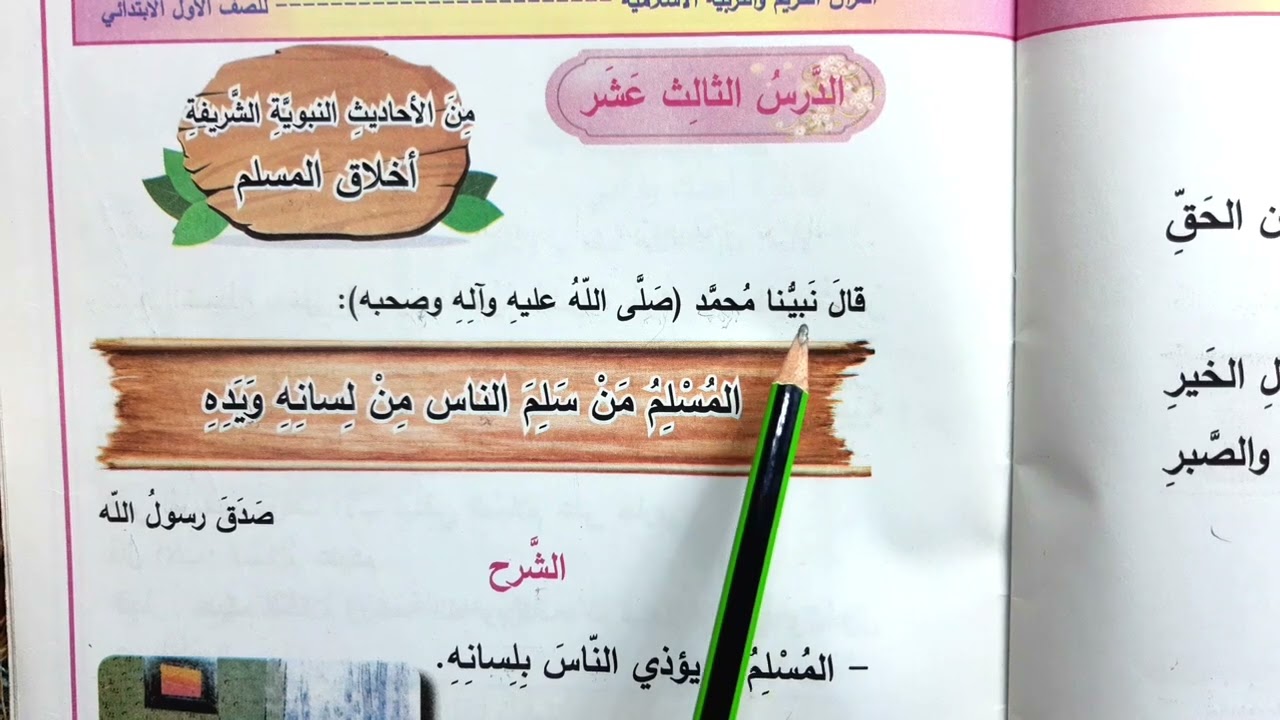 القرآن الكريم والتربية الاسلامية ---------------------------- للصف الأول الابتدائي
الدَّرسُ الثالِث عَشَر
مِنَ الأحاديثِ النبويَّةِ الشَّريفةِ
أخلاق المسلم
قالَ نَبيُّنا مُحمَّد (صَلَّى اللّهُ عليهِ وآلِهِ وصحبه):
المُسْلِمُ مَنْ سَلِمَ الناس مِنْ لِسانِهِ وَيَدِهِ
صَدَقَ رسولُ اللّه
الشَّرح
– المُسْلِمُ يؤذي النّاسَ بِلِسانِهِ.
الحَقِّ
الخَيرِ
والصَّبرِ